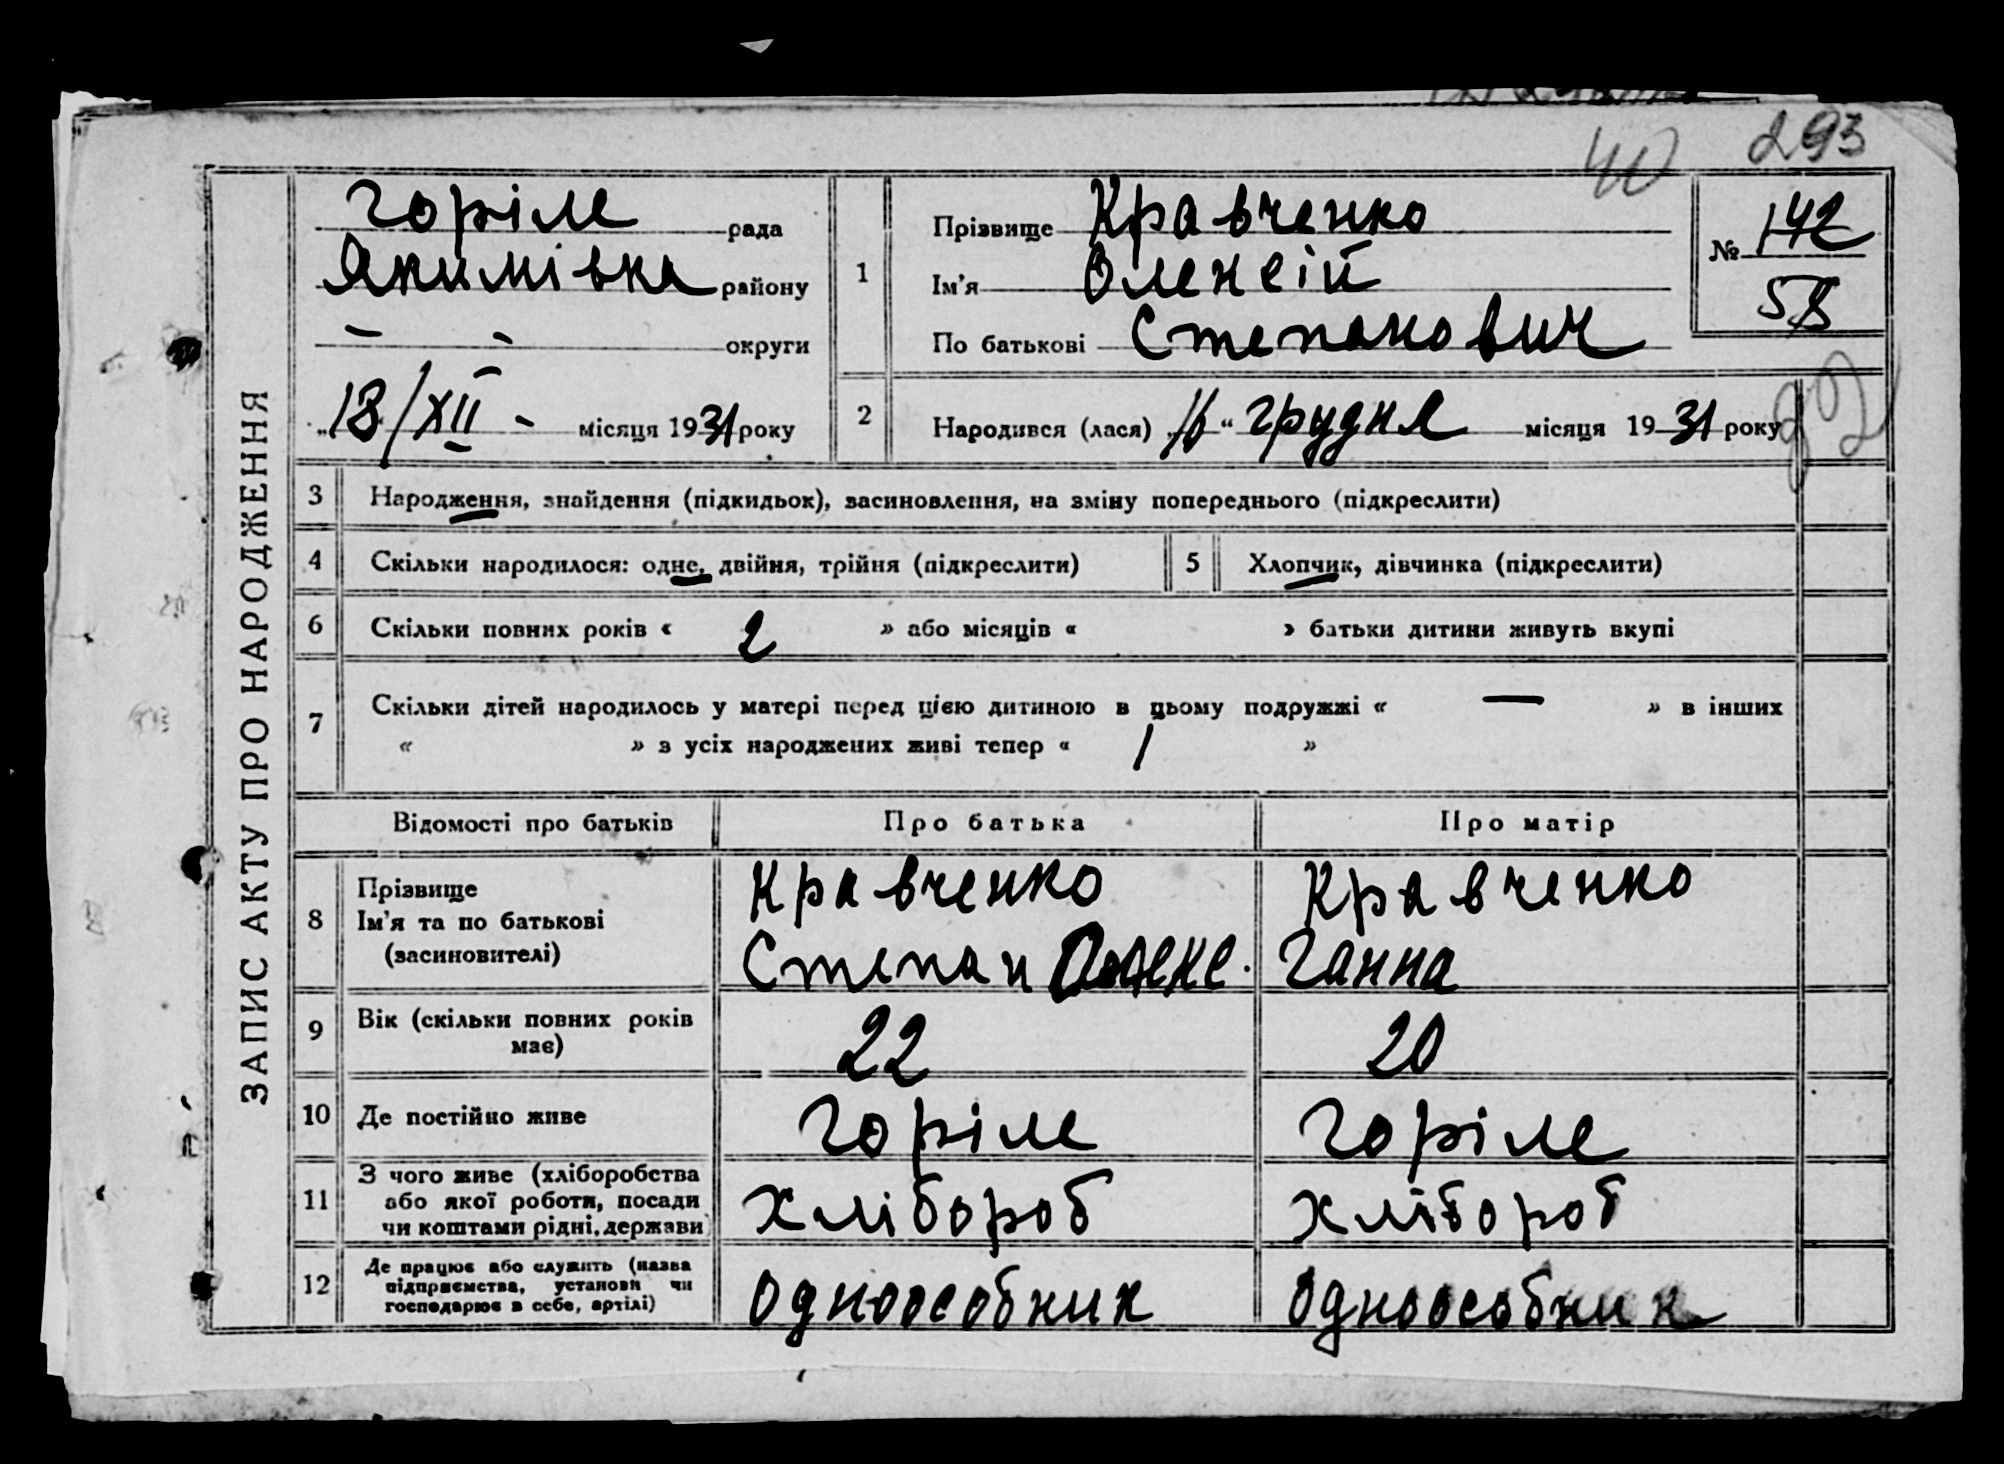 40 293
ЗАПИС АКТУ ПРО НАРОДЖЕННЯ
Горіле рада
Якимівка району
— — округи
„18/XII - місяця 1931 року
1
Прізвище Кравченко
Ім'я Олексій
По батькові Степанович
№ 142
58
2
Народився (лася) „16“ грудня місяця 1931 року
3 Народження, знайдення (підкидьок), засиновлення, на зміну попереднього (підкреслити)
4 Скільки народилося: одне, двійня, трійня (підкреслити)
5 Хлопчик, дівчинка (підкреслити)
6 Скільки повних років « 2 » або місяців « » батьки дитини живуть вкупі
7 Скільки дітей народилось у матері перед цією дитиною в цьому подружжі « — » в інших
« » з усіх народжених живі тепер « 1 »
Відомості про батьків Про батька Про матір
8 Прізвище Кравченко Кравченко
Ім'я та по батькові
(засиновителі) Степан Олекс. Ганна
9 Вік (скільки повних років має) 22 20
10 Де постійно живе Горіле Горіле
11 З чого живе (хліборобства
або якої роботи, посади
чи коштами рідні, держави) хлібороб хлібороб
12 Де працює або служить (назва
підприємства, установи чи
господарює в себе, артілі) одноособник одноособник